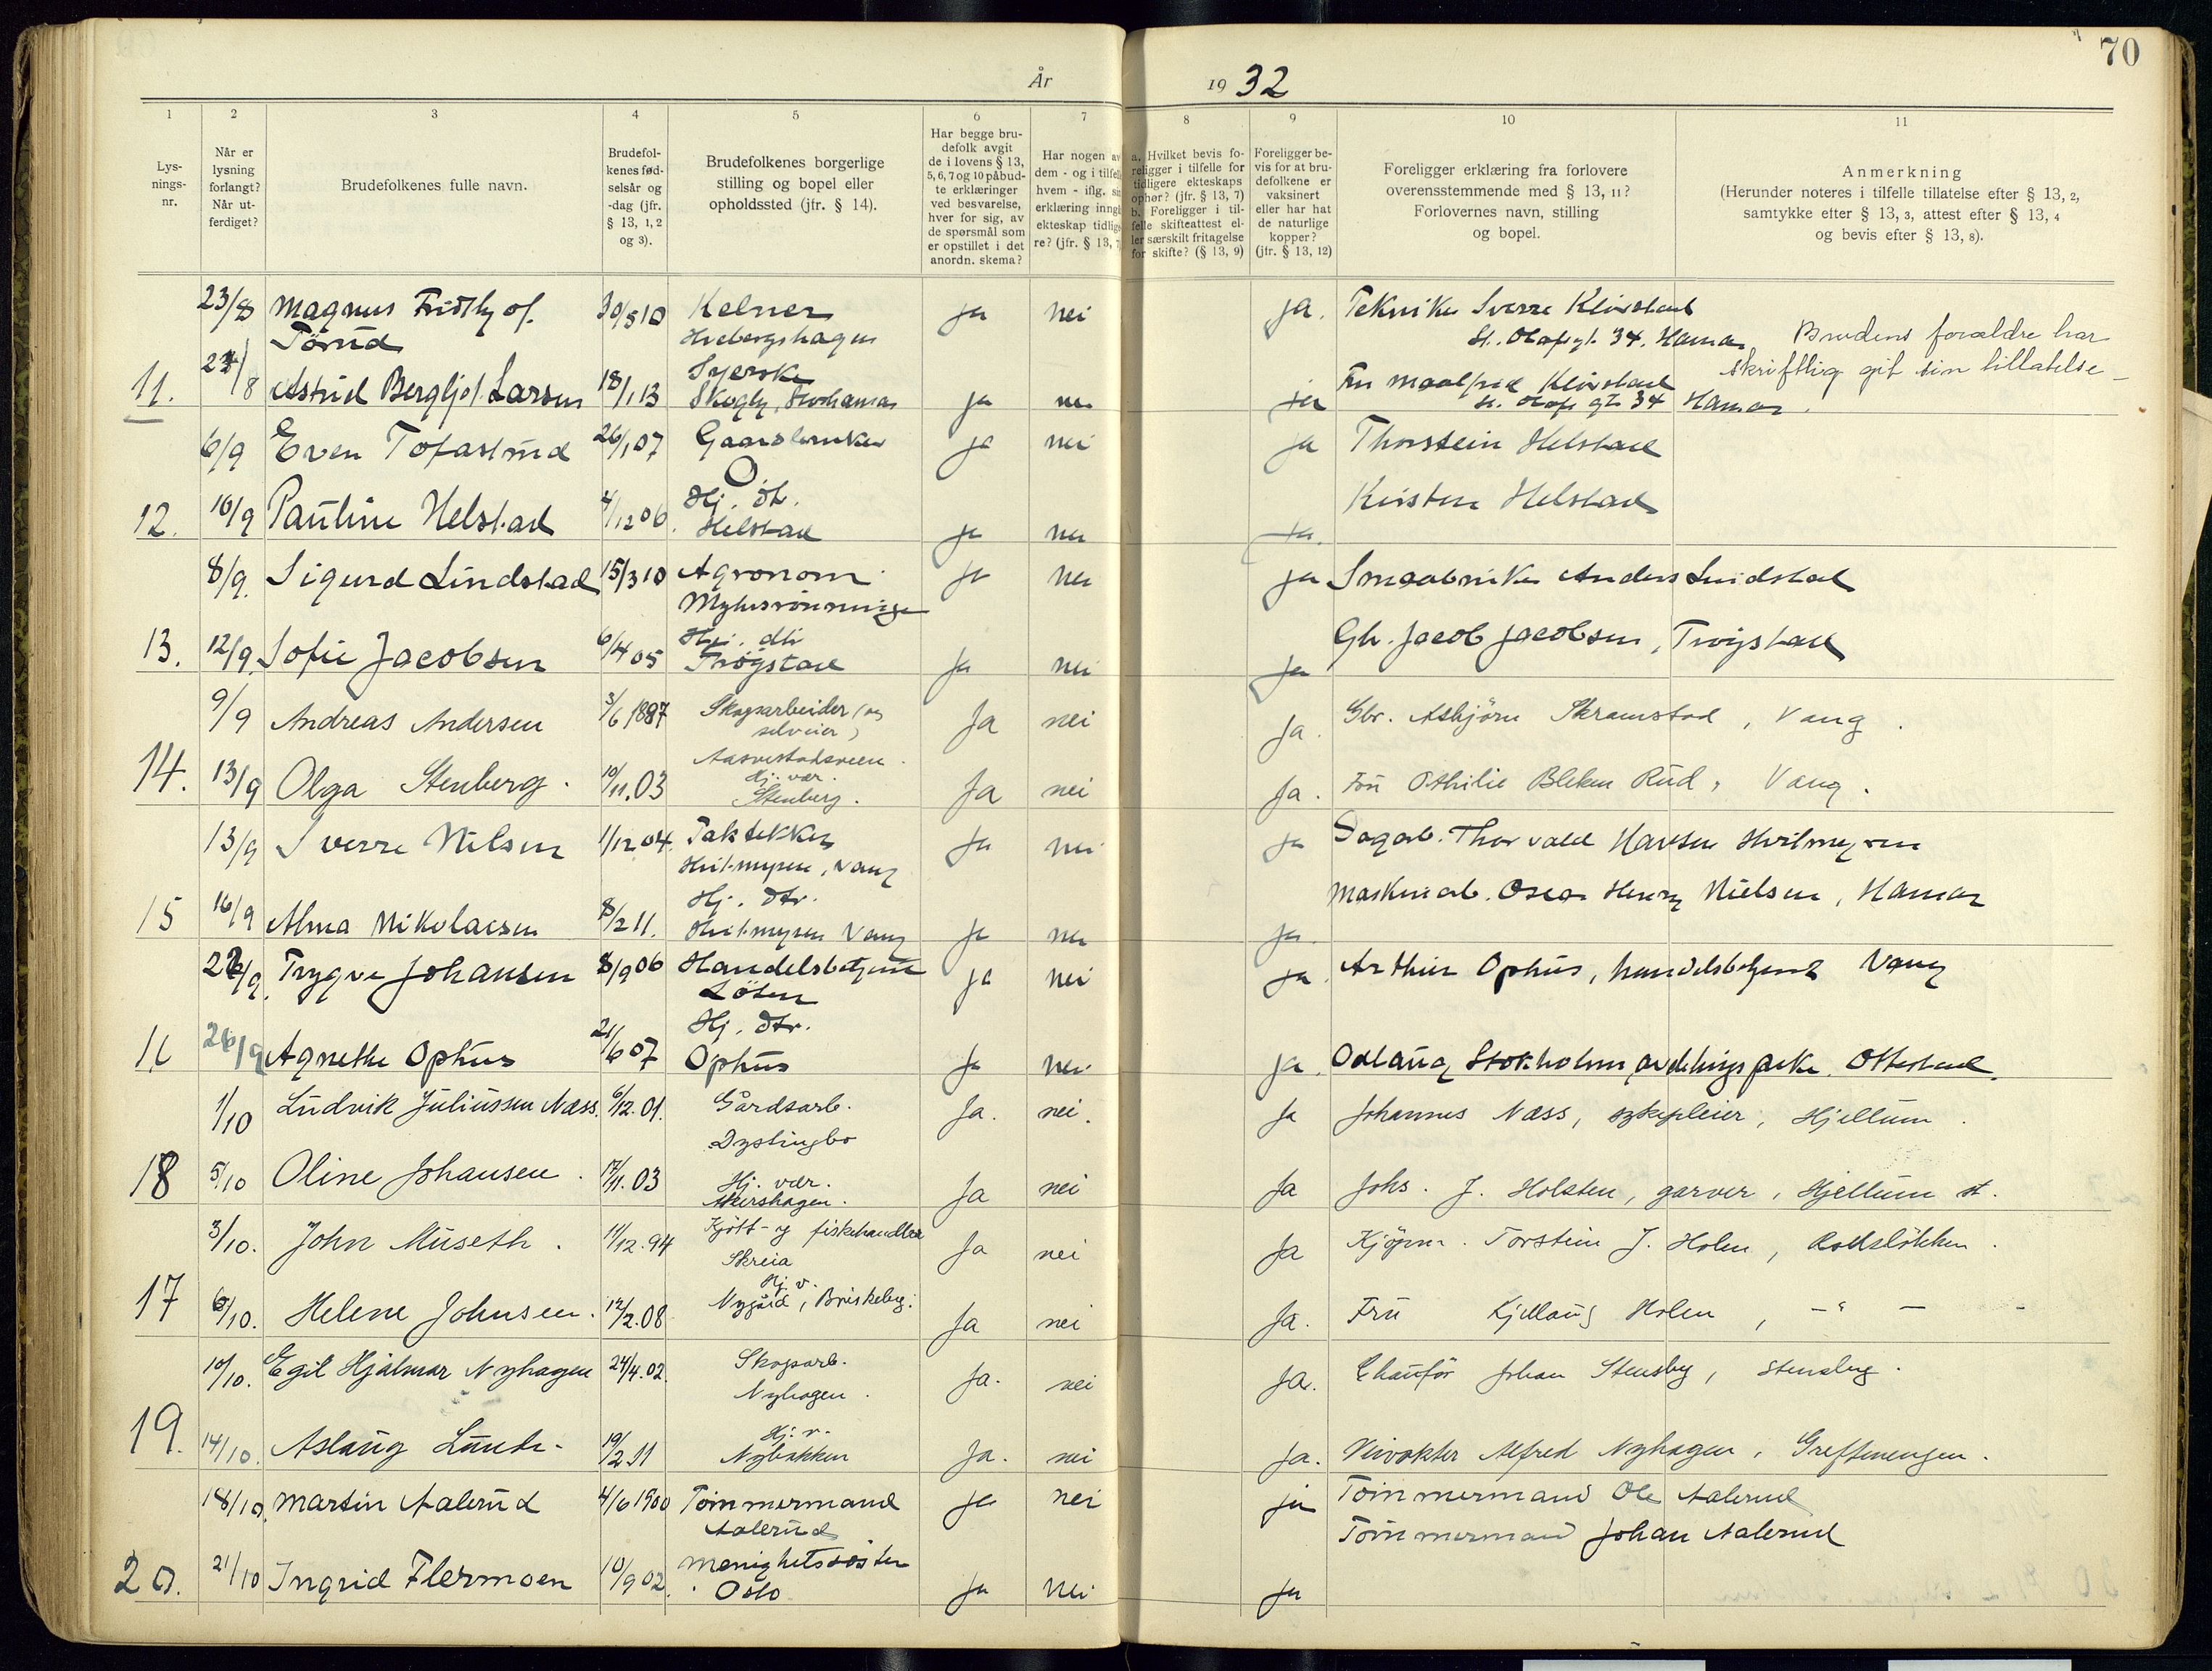 70
År 1932
1
2
3
4
5
6
7
8
9
10
11
Lysningsnr.
Når er lysning forlangt? Når utferdiget?
Brudefolkenes fulle navn.
Brudefolkenes fødselsår og -dag (jfr. § 13, 1, 2 og 3).
Brudefolkenes borgerlige stilling og bopel eller opholdssted (jfr. § 14).
Har begge brudefolk avgit de i lovens § 13, 5, 6, 7 og 10 påbudte erklæringer ved besvarelse, hver for sig, av de spørsmål som er opstillet i det anordn. skema?
Har nogen av dem - og i tilfelle hvem - iflg. sin erklæring inngått ekteskap tidligere? (jfr. § 13, 7)
a. Hvilket bevis foreligger i tilfelle for tidligere ekteskaps ophør? (jfr. § 13, 7) b. Foreligger i tilfelle skifteattest eller særskilt fritagelse for skifte? (§ 13, 9)
Foreligger bevis for at brudefolkene er vaksinert eller har hat de naturlige kopper? (jfr. § 13, 12)
Foreligger erklæring fra forlovere overensstemmende med § 13, 11? Forlovernes navn, stilling og bopel.
Anmerkning (Herunder noteres i tilfelle tillatelse efter § 13, 2, samtykke efter § 13, 3, attest efter § 13, 4 og bevis efter § 13, 8).
23/8 Magnus Fridthjof. Törud 30/5 10 Kelner Hvebergshagen ja nei ja. Tekniker Sverre Klövstad St. Olafsgt. 34. Hamar
Brudens forældre har skriftlig git sin tillatelse
11. 8 Astrid Bergljot Larsen 18/1 13 Syerske Skogly, Storhamar ja nei ja Fru Klövstad St. Olafs gt 34 Hamar.
6/9 Even Tofastrud 26/1 07 Gaardbruker ja nei ja Thorstein Helstad
12. 10/9 Pauline Helstad 4/12 06. Hj. dt. Helstad ja nei ja. Kirsten Helstad
8/9. Sigurd Lindstad 15/3 10 Agronom ja nei ja Smaabruker Anders Lindstad
13. 12/9. Sofie Jacobsen 6/4 05 Hj. dtr Trögstad ja nei ja Gb. Jacob Jacobsen, Trögstad
9/9 Andreas Andersen 3/6 1887 Skogsarbeider (og selveier) Ja nei Ja. Gbr. Asbjörn Skramstad, Vang.
14. 13/9 Olga Stenberg. 10/11. 03 Hj. vær. Stenberg. Ja nei Ja. Fru Othilie Bleken Rud, Vang.
13/9 Sverre Nilsen 1/12 04. Taktekker Hvitmyren, Vang ja nei ja Dagarb. Thorvald Hansen Hvitmyren
15 16/9 Alma Nikolaisen 8/2 11. Hj. dtr. Hvitmyren Vang ja nei ja Maskinarb. Oscar Henry Nielsen, Hamar
Trygve Johansen 8/9 06 Handelsbetjent Löten ja nei ja. Arthur Ophus, handelsbetjent Vang
16 26/9 Agnethe Ophus 21/6 07 Hj. dtr. Ophus ja nei ja. Odlaug Stokholm, Ottestad.
1/10 Ludvik Juliussen Næss. 6/12. 01. Gårdsarb. Dystingbo Ja. nei. Ja Johannes Næss, sykepleier, Hjellum.
18 5/10 Oline Johansen. 17/11. 03 Hj. vær. Akershagen. Ja nei Ja Johs. J. Holsten, garver, Hjellum st.
3/10. John Museth. 11/12. 94 Kjött- og fiskehandler Skreia Ja nei Ja Kjöpm. Torstein J. Holen,
17 6/10. Helene Johnsen. 12/2. 08 Hj. v. Nygård, Briskeby. Ja nei Ja. Fru Kjellaug Holen, – " –
10/10. Egil Hjalmar Nyhagen 24/4. 02. Skogsarb. Nyhagen. Ja. nei Ja. Chauför Johan Stensby, Stensby.
19. 14/10. Aslaug Lunde. 19/2 11 Hj. v. Nybakken Ja. nei Ja. Alfred Nyhagen, Greftenengen.
18/10. Martin Aalerud 4/6 1900 Tömmermand Aalerud ja nei ja Tömmermand Ole Aalerud
Tömmermand Johan Aalerud
20. 21/10 Ingrid Flermoen 10/9 02. Menighetssöster Oslo ja nei ja